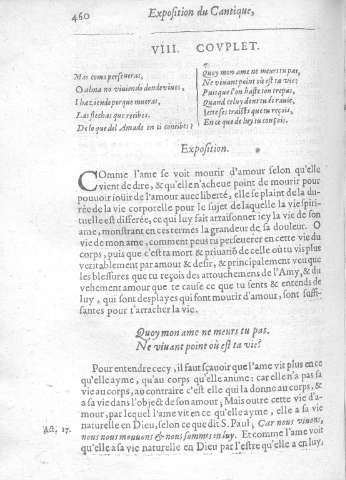 460
Exposition du Cantique,
VIII. COVPLET.
Mas como perseueras,
O alma no viuiendo donde viues,
I haziendo porque mueras,
Las flechas que recibes.
De lo que del Amado en ti concibes?
Quoy mon ame ne meurs tu pas,
Ne viuant point où est ta vie?
Puisque l'on haste ton trepas,
Quand celuy dont tu és rauie,
Iette ses traicts que tu reçois,
En ce que de luy tu conçois.
Exposition.
Comme l'ame se voit mourir d'amour selon qu'elle
vient de dire, & qu'elle n'acheue point de mourir pour
pouuoir ioüir de l'amour auec liberté, elle se plaint de la du-
rée de la vie corporelle pour le sujet de laquelle la vie spiri-
tuelle est differée, ce qui luy fait arraisonner icy la vie de son
ame, monstrant en ces termes la grandeur de sa douleur. O
vie de mon ame, comment peus tu perseuerer en cette vie du
corps, puis que c'est ta mort & priuatiō de celle où tu vis plus
veritablement par amour & desir, & principalement veu que
les blessures que tu reçois des attouchemens de l'Amy, & du
vehement amour que te cause ce que tu sents & entends de
luy, qui sont desplayes qui font mourir d'amour, sont suffi-
santes pour t'arracher la vie.
Quoy mon ame ne meurs tu pas,
Ne viuant point où est ta vie?
Pour entendre cecy, il faut sçauoir que l'ame vit plus en ce
qu'elle ayme, qu'au corps qu'elle anime: car elle n'a pas sa
vie au corps, au contraire c'est elle qui la donne au corps, &
a sa vie dans l'object de son amour; Mais outre cette vie d'a-
mour, par lequel l'ame vit en ce qu'elle ayme, elle a sa vie
naturelle en Dieu, selon ce que dit S. Paul; Car nous viuons,
Act. 17.
nous nous mouuons & nous sommes en luy. Et comme l'ame voit
qu'elle a sa vie naturelle en Dieu par l'estre qu'elle a en luy,